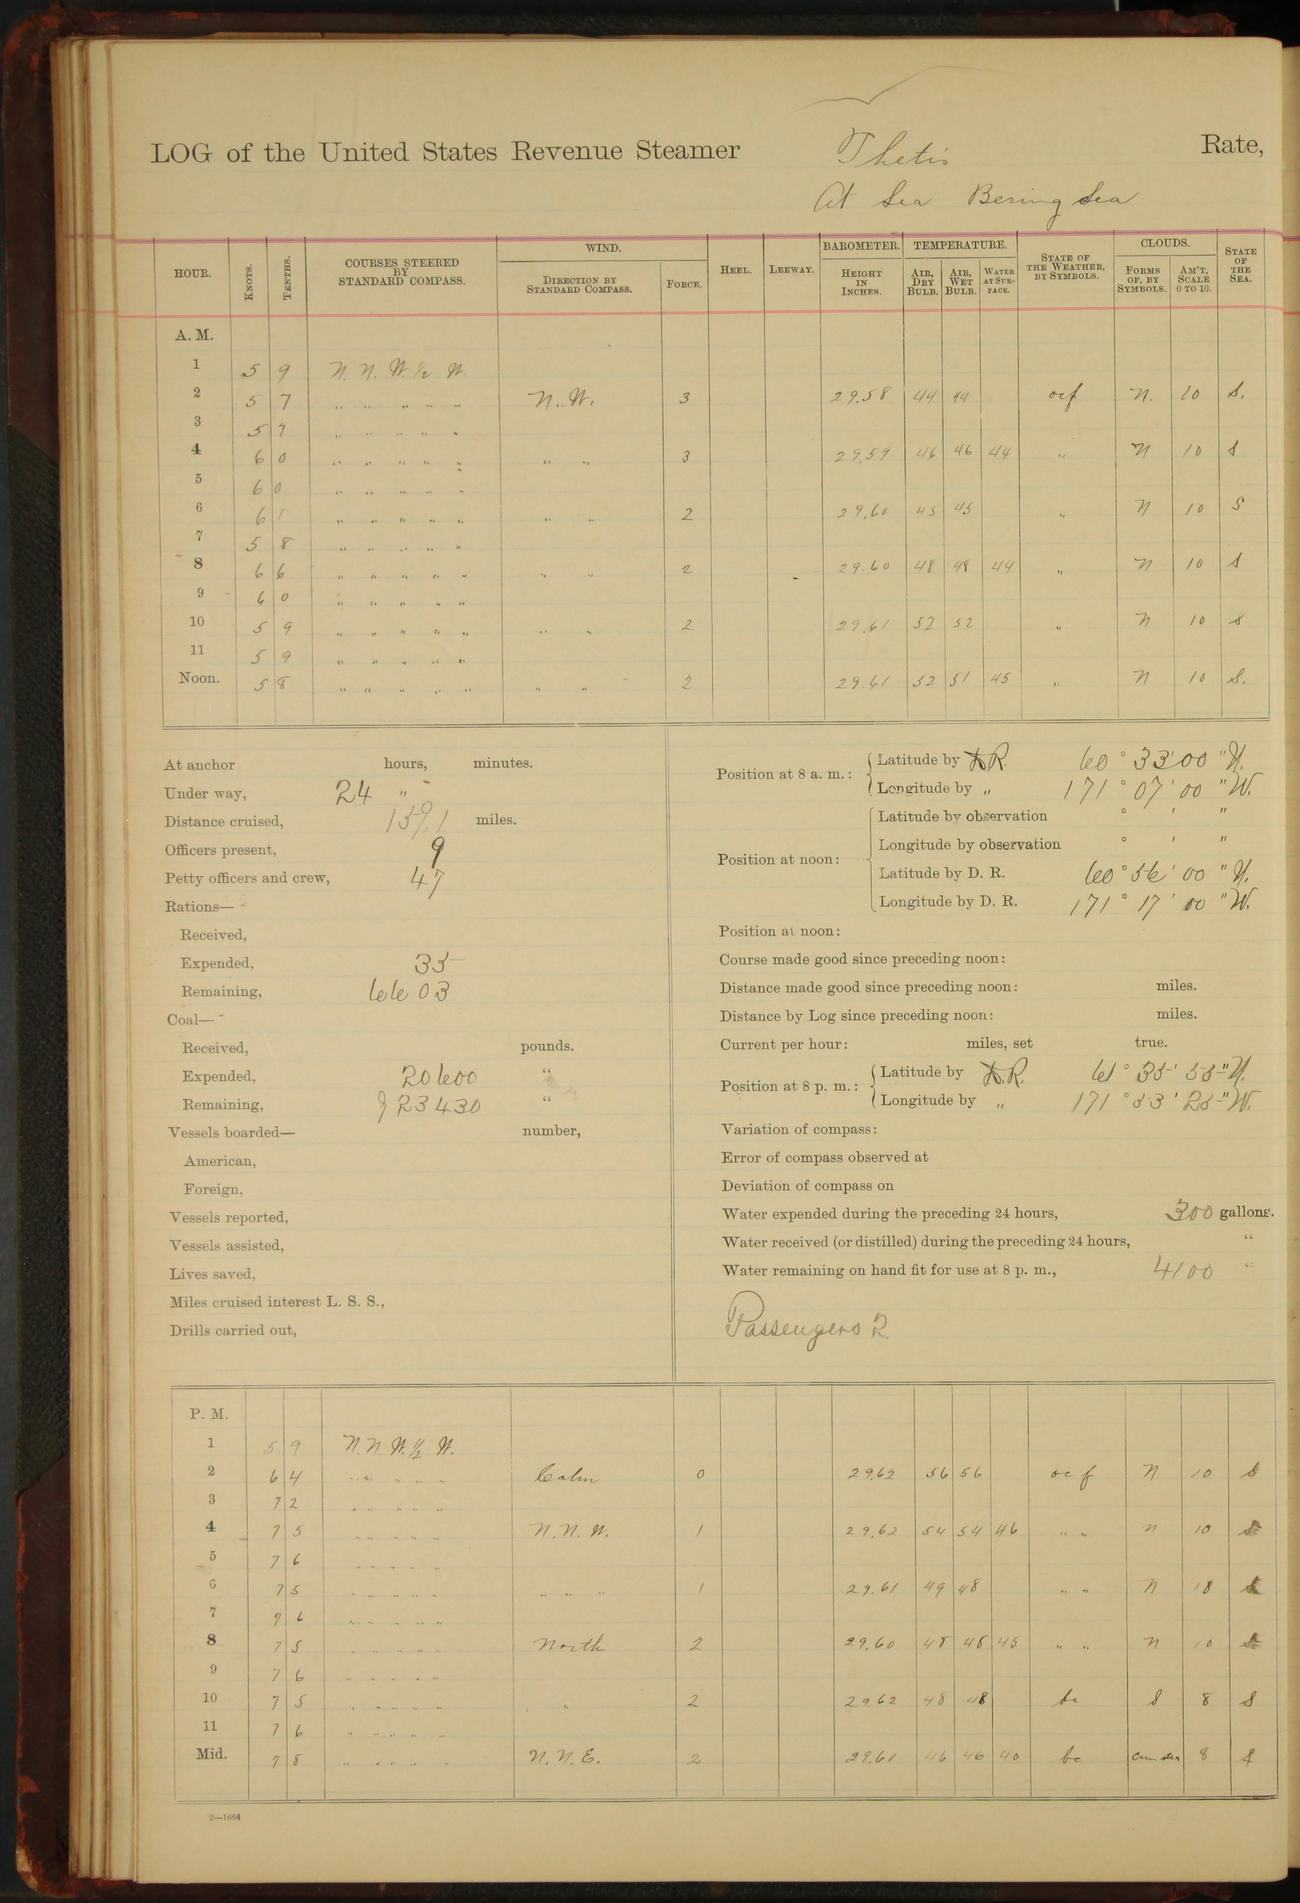 LOG of the United States Revenue Steamer Thetis Rate,
At Sea Bering Sea
HOUR. KNOTS. TENTHS. COURSES STEERED BY STANDARD COMPASS. WIND. DIRECTION BY STANDARD COMPASS. FORCE. HEEL. LEEWAY. BAROMETER. HEIGHT IN INCHES. TEMPERATURE. AIR, DRY BULB. AIR, WET BULB. WATER AT SURFACE. STATE OF THE WEATHER, BY SYMBOLS. CLOUDS. FORMS OF, BY SYMBOLS. AM'T, SCALE 0 TO 10. STATE OF THE SEA.
A. M.
1 5 9 N. N. W. 1/2 W.
2 5 7 " " " " " N. W. 3 29.58 44 44 ocf N. 10 S.
3 5 7 " " " " "
4 6 0 " " " " " " " 3 29.59 46 46 44 " N 10 S
5 6 0 " " " " "
6 6 1 " " " " " " " 2 29.60 45 45 " N 10 S
7 5 8 " " " " "
8 6 6 " " " " " " " 2 29.60 48 48 44 " N 10 S
9 6 0 " " " " "
10 5 9 " " " " " " " 2 29.61 52 52 " N 10 S
11 5 9 " " " " "
Noon. 5 8 " " " " " " " 2 29.61 52 51 45 " N 10 S.
At anchor hours, minutes.
Under way, 24 "
Distance cruised, 159.1 miles.
Officers present, 9
Petty officers and crew, 47
Rations—
Received,
Expended, 35
Remaining, 6603
Coal—
Received, pounds.
Expended, 20600 "
Remaining, 23430 "
Vessels boarded— number,
American,
Foreign,
Vessels reported,
Vessels assisted,
Lives saved,
Miles cruised interest L. S. S.,
Drills carried out,
Position at 8 a. m.: Latitude by D.R. 60 ° 33 ' 00 " N.
Longitude by " 171 ° 07 ' 00 " W.
Position at noon: Latitude by observation ° ' "
Longitude by observation ° ' "
Latitude by D. R. 60 ° 56 ' 00 " N.
Longitude by D. R. 171 ° 17 ' 00 " W.
Position at noon:
Course made good since preceding noon:
Distance made good since preceding noon: miles.
Distance by Log since preceding noon: miles.
Current per hour: miles, set true.
Position at 8 p. m.: Latitude by D.R. 61 ° 35 ' 55 " N.
Longitude by " 171 ° 53 ' 25 " W.
Variation of compass:
Error of compass observed at
Deviation of compass on
Water expended during the preceding 24 hours, 300 gallons.
Water received (or distilled) during the preceding 24 hours, "
Water remaining on hand fit for use at 8 p. m., 4100 "
Passengers 2.
P. M.
1 5 9 N. N. W. 1/2 W.
2 6 4 " " " " " Calm 0 29.62 56 56 ocf N 10 S
3 7 2 " " " " "
4 7 5 " " " " " N. N. W. 1 29.62 54 54 46 " " N 10 S
5 7 6 " " " " "
6 7 5 " " " " " " " " 1 29.61 49 48 " " N 10 S
7 7 6 " " " " "
8 7 5 " " " " " North 2 29.60 48 48 45 " " N 10 S
9 7 6 " " " " "
10 7 5 " " " " " " 2 29.62 48 48 bc S 8 S
11 7 6 " " " " "
Mid. 7 8 " " " " " N. N. E. 2 29.60 46 46 40 bc 8 S
2—1664